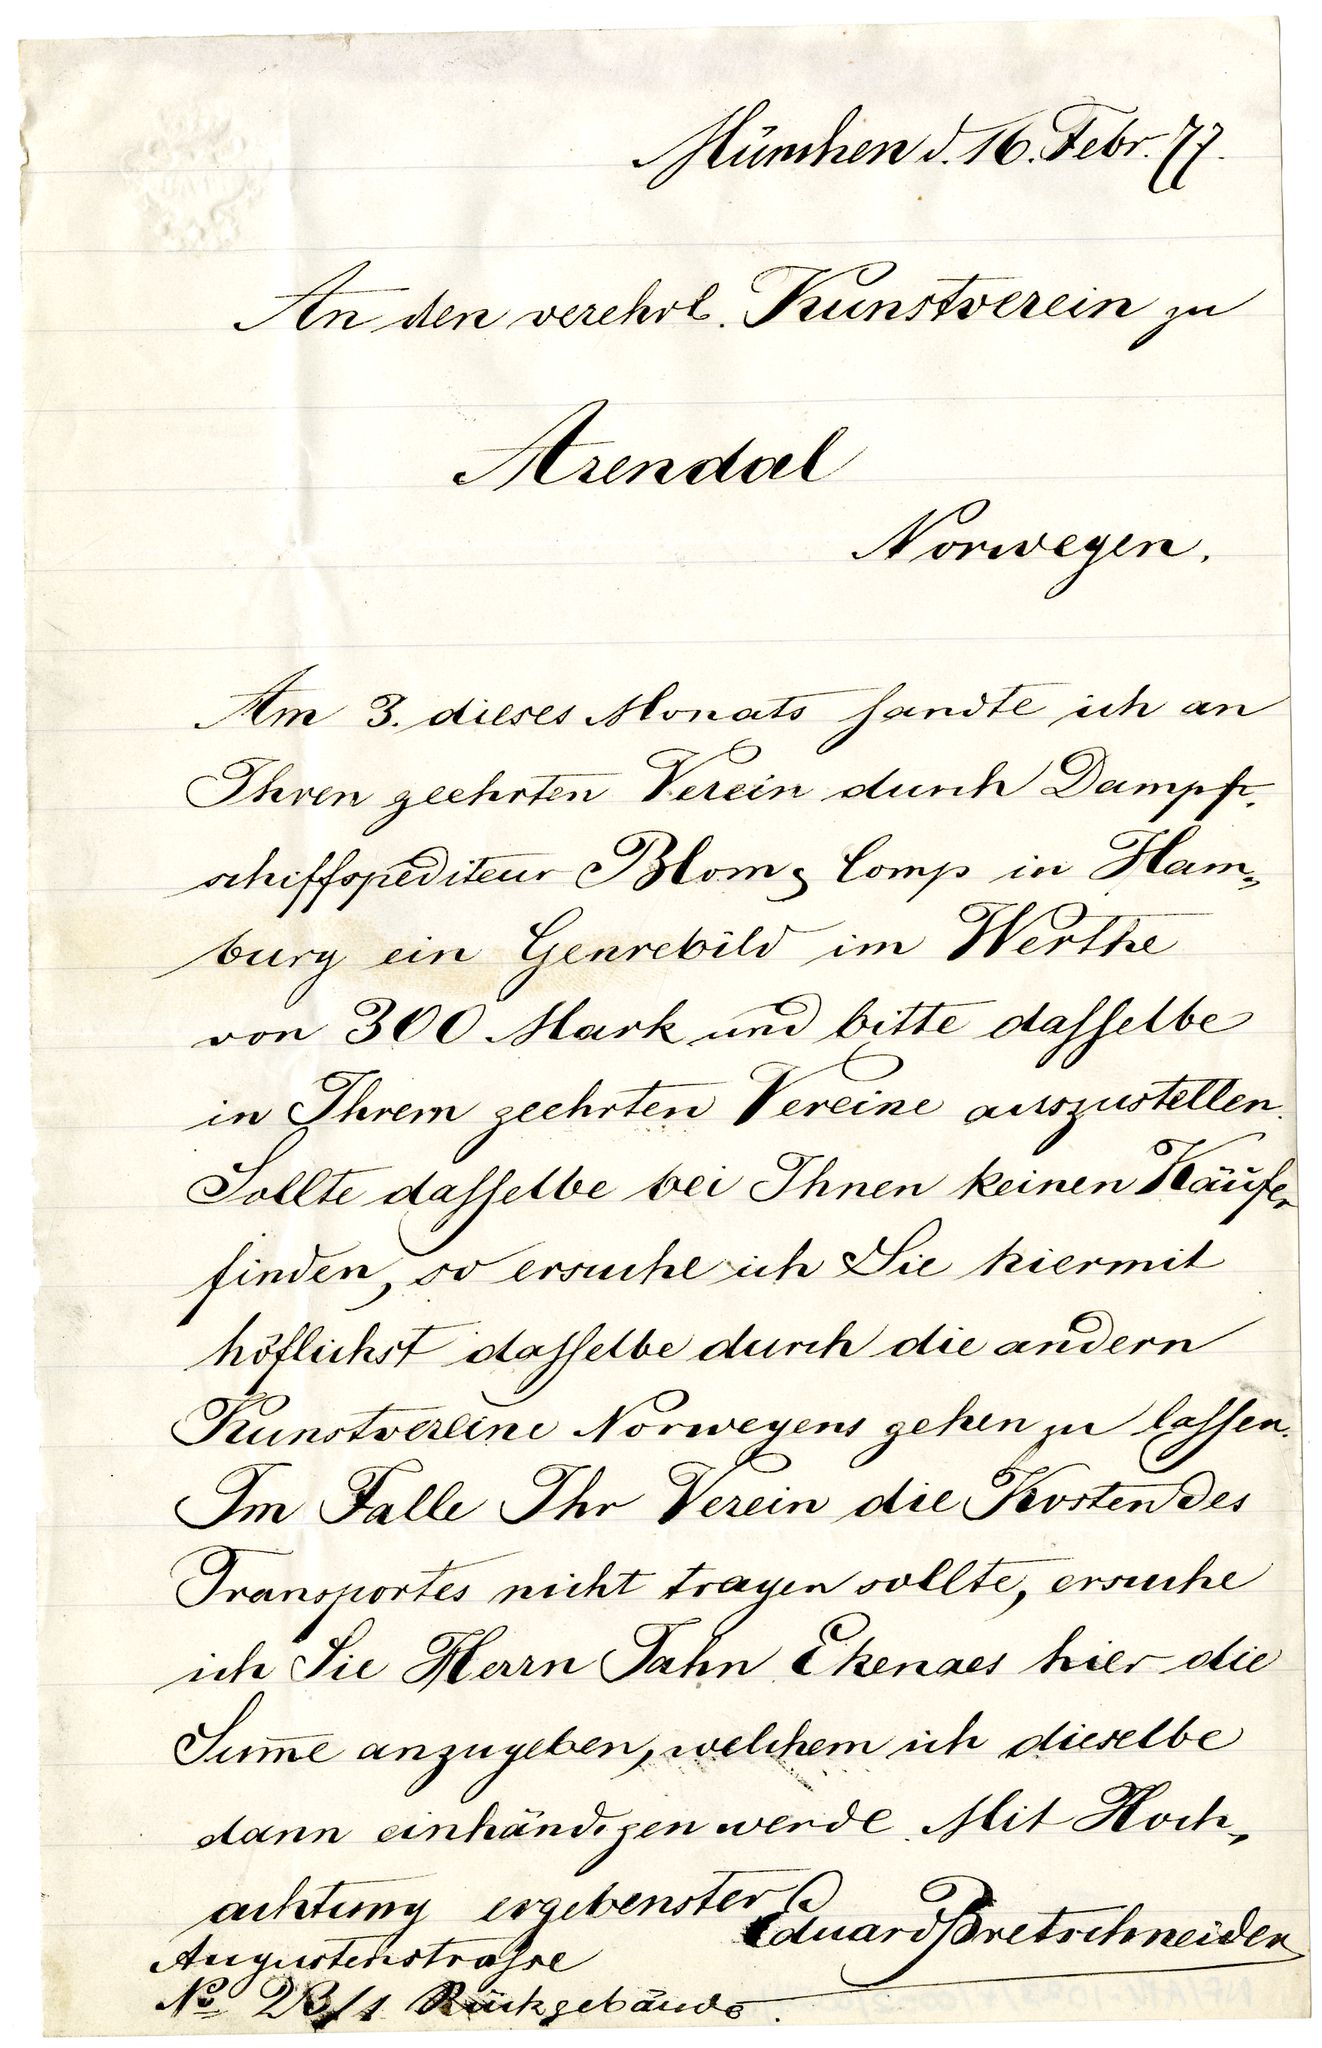 München d. 16. Febr. 77.
An den verehrl. Kunstverein zu
Arendal
Norwegen.
Am 3. dieses Monats sandte ich an
Ihren geehrten Verein durch Dampf-
schiffspediteur Blom & Comp in Ham-
burg ein Genrebild im Werthe
von 300 Mark und bitte dasselbe
in Ihrem geehrten Vereine auszustellen.
Sollte dasselbe bei Ihnen keinen Käufer
finden, so ersuche ich Sie hiermit
höflichst dasselbe durch die andern
Kunstvereine Norwegens gehen zu lassen.
Im Falle Ihr Verein die Kosten des
Transportes nicht tragen sollte, ersuche
ich Sie Herrn Jahn Ekenaes hier die
Sum̄e anzugeben, welchem ich dieselbe
dann einhändigen werde. Mit Hoch-
achtung ergebenster
Eduard Bretschneider
Augustenstrasse
No 23/1 Rückgebäude.